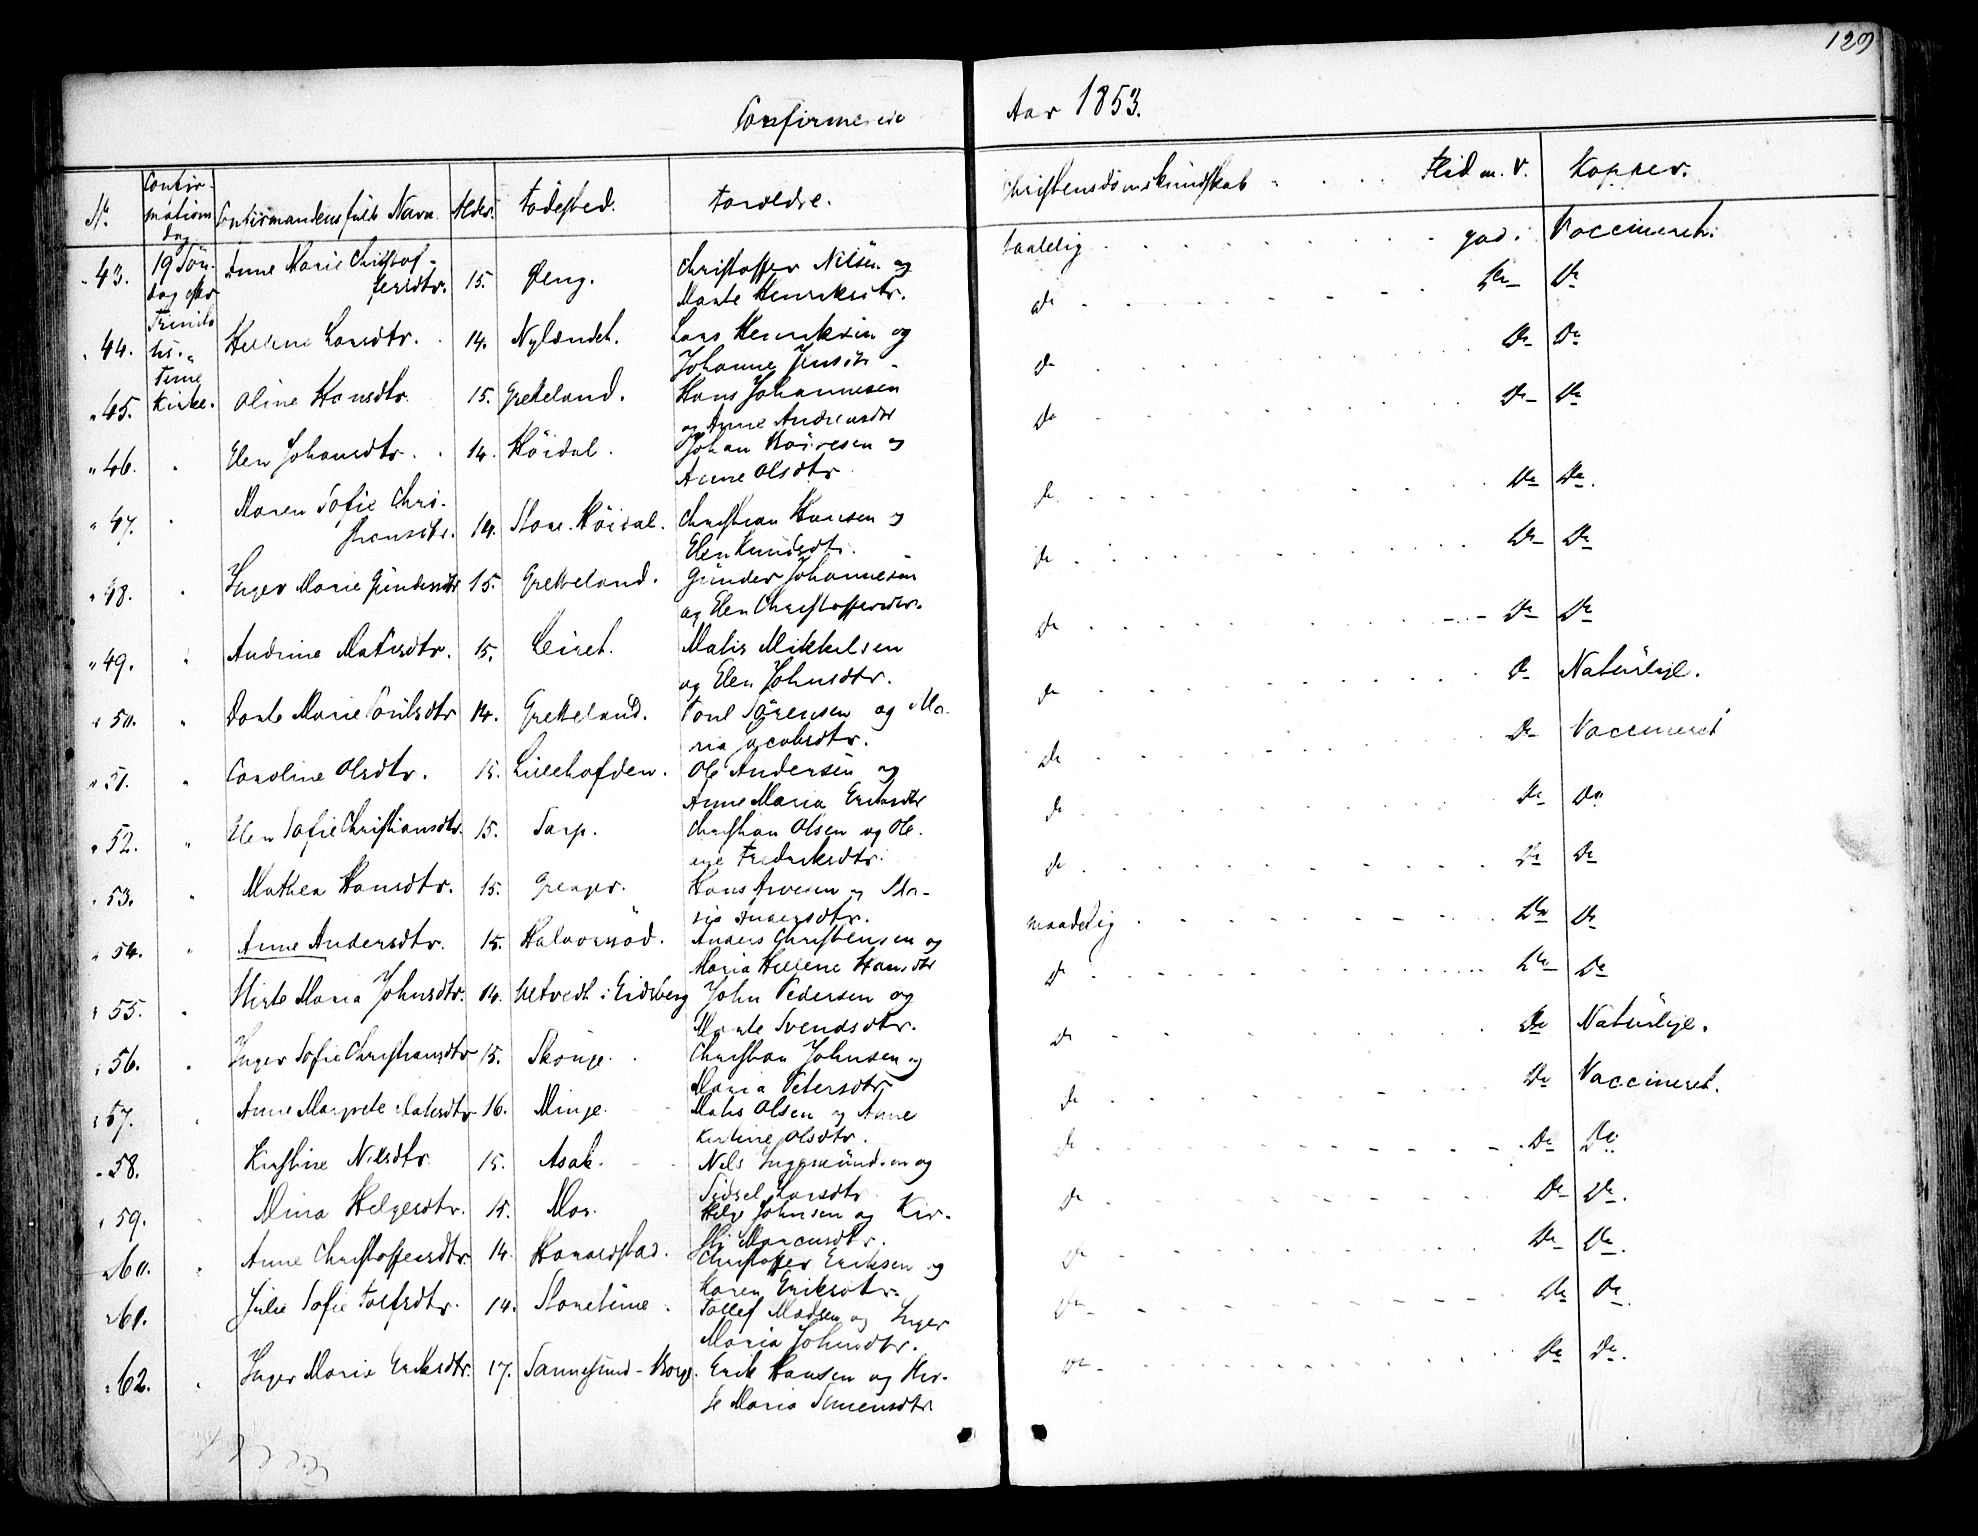 129
Confirmerede
Aar 1853.
No
Confirmations dag
Confirmandens fulde Navn
Alder
Födested.
Foreldre.
Christensdomskundskab
Flid m. V.
Kopper.
43. 19 Sön- Anne Marie Christof- 15. Öeng. Christoffer Nilsen og taalelig god. Vaccineret.
dag efter fersdtr. Marte Henriksdtr.
44. Trinita- Hellene Larsdtr. 14. Nylændet. Lars Henriksen og Do Do Do
tis. Johanne Jensdtr
45. Tune Kirke. Oline Hansdtr. 15. Gretteland. Hans Johannesen Do Do Do
og Anne Andreasdtr
46. " Elen Johansdtr. 14. Höidal. Johan Boiresen og Do Do Do
Anne Olsdtr
47. " Maren Sofie Chri- 14. Store Höidal. Christian Hansen og Do Do Do.
stiansdtr. Elen Knudsdtr.
48. " Inger Marie Gundersdtr 15. Gretteland. Gunder Johannesen Do Do Do
og Elen Christoffersdtr.
49. " Andrine Matisdtr. 15. Leiret. Matis Mikkelsen Do Do Do
og Elen Johnsdtr.
50. " Dorte Marie Poulsdtr 14. Gretteland. Poul Sörensen og Ma- Do Do Naturlige.
ria Jacobsdtr.
51. " Caroline Olsdtr. 15. Lillehafden. Ole Andersen og Do Do Vaccineret
Anne Maria Eriksdtr
52. " Elen Sofie Christiansdtr. 15. Sarp. Christian Olsen og Ole- Do Do Do
ene Fredriksdtr.
53. " Mathea Hansdtr. 15. Greager. Hans Arvesen og Ma- Do Do Do
ria Andersdtr.
54. " Anne Andersdtr. 15. Halvorsröd. Anders Christensen og maadelig Do Do
Maria Hellene Hansdtr
55. " Mirte Maria Johnsdtr. 14. Ultvedt i Eidsberg John Pedersen og Do Do Do
Marte Svendsdtr.
56. " Inger Sofie Christiansdtr 15. Skonge. Christian Johnsen og Do Do Naturlige.
Maria Petersdtr
57. " Anne Margrete Matisdtr 16. Minge. Matis Olsen og Anne Do Do Vaccineret.
Kirstine Olsdtr.
58. Kirstine Nilsdtr 15. Asak. Nels Inggemundsen og Do Do Do.
Sidsel Larsdtr
59. Mina Helgesdtr. 15. Moa. Helge Johnsen og Kir- Do Do Do.
sti Marcusdtr.
60. Anne Christoffersdtr. 14. Hanarstad. Christoffer Eriksen og Do Do Do.
Karen Eriksdtr.
61. Julie Sofie Tollefsdtr. 14. Storetune. Tollef Madsen og Inger Do Do Do.
Maria Johnsdtr.
62. " Inger Marie Eriksdtr. 17. Sannesund-Borg. Erik Hansen og Kir- Do Do Do.
ste Maria Simensdtr